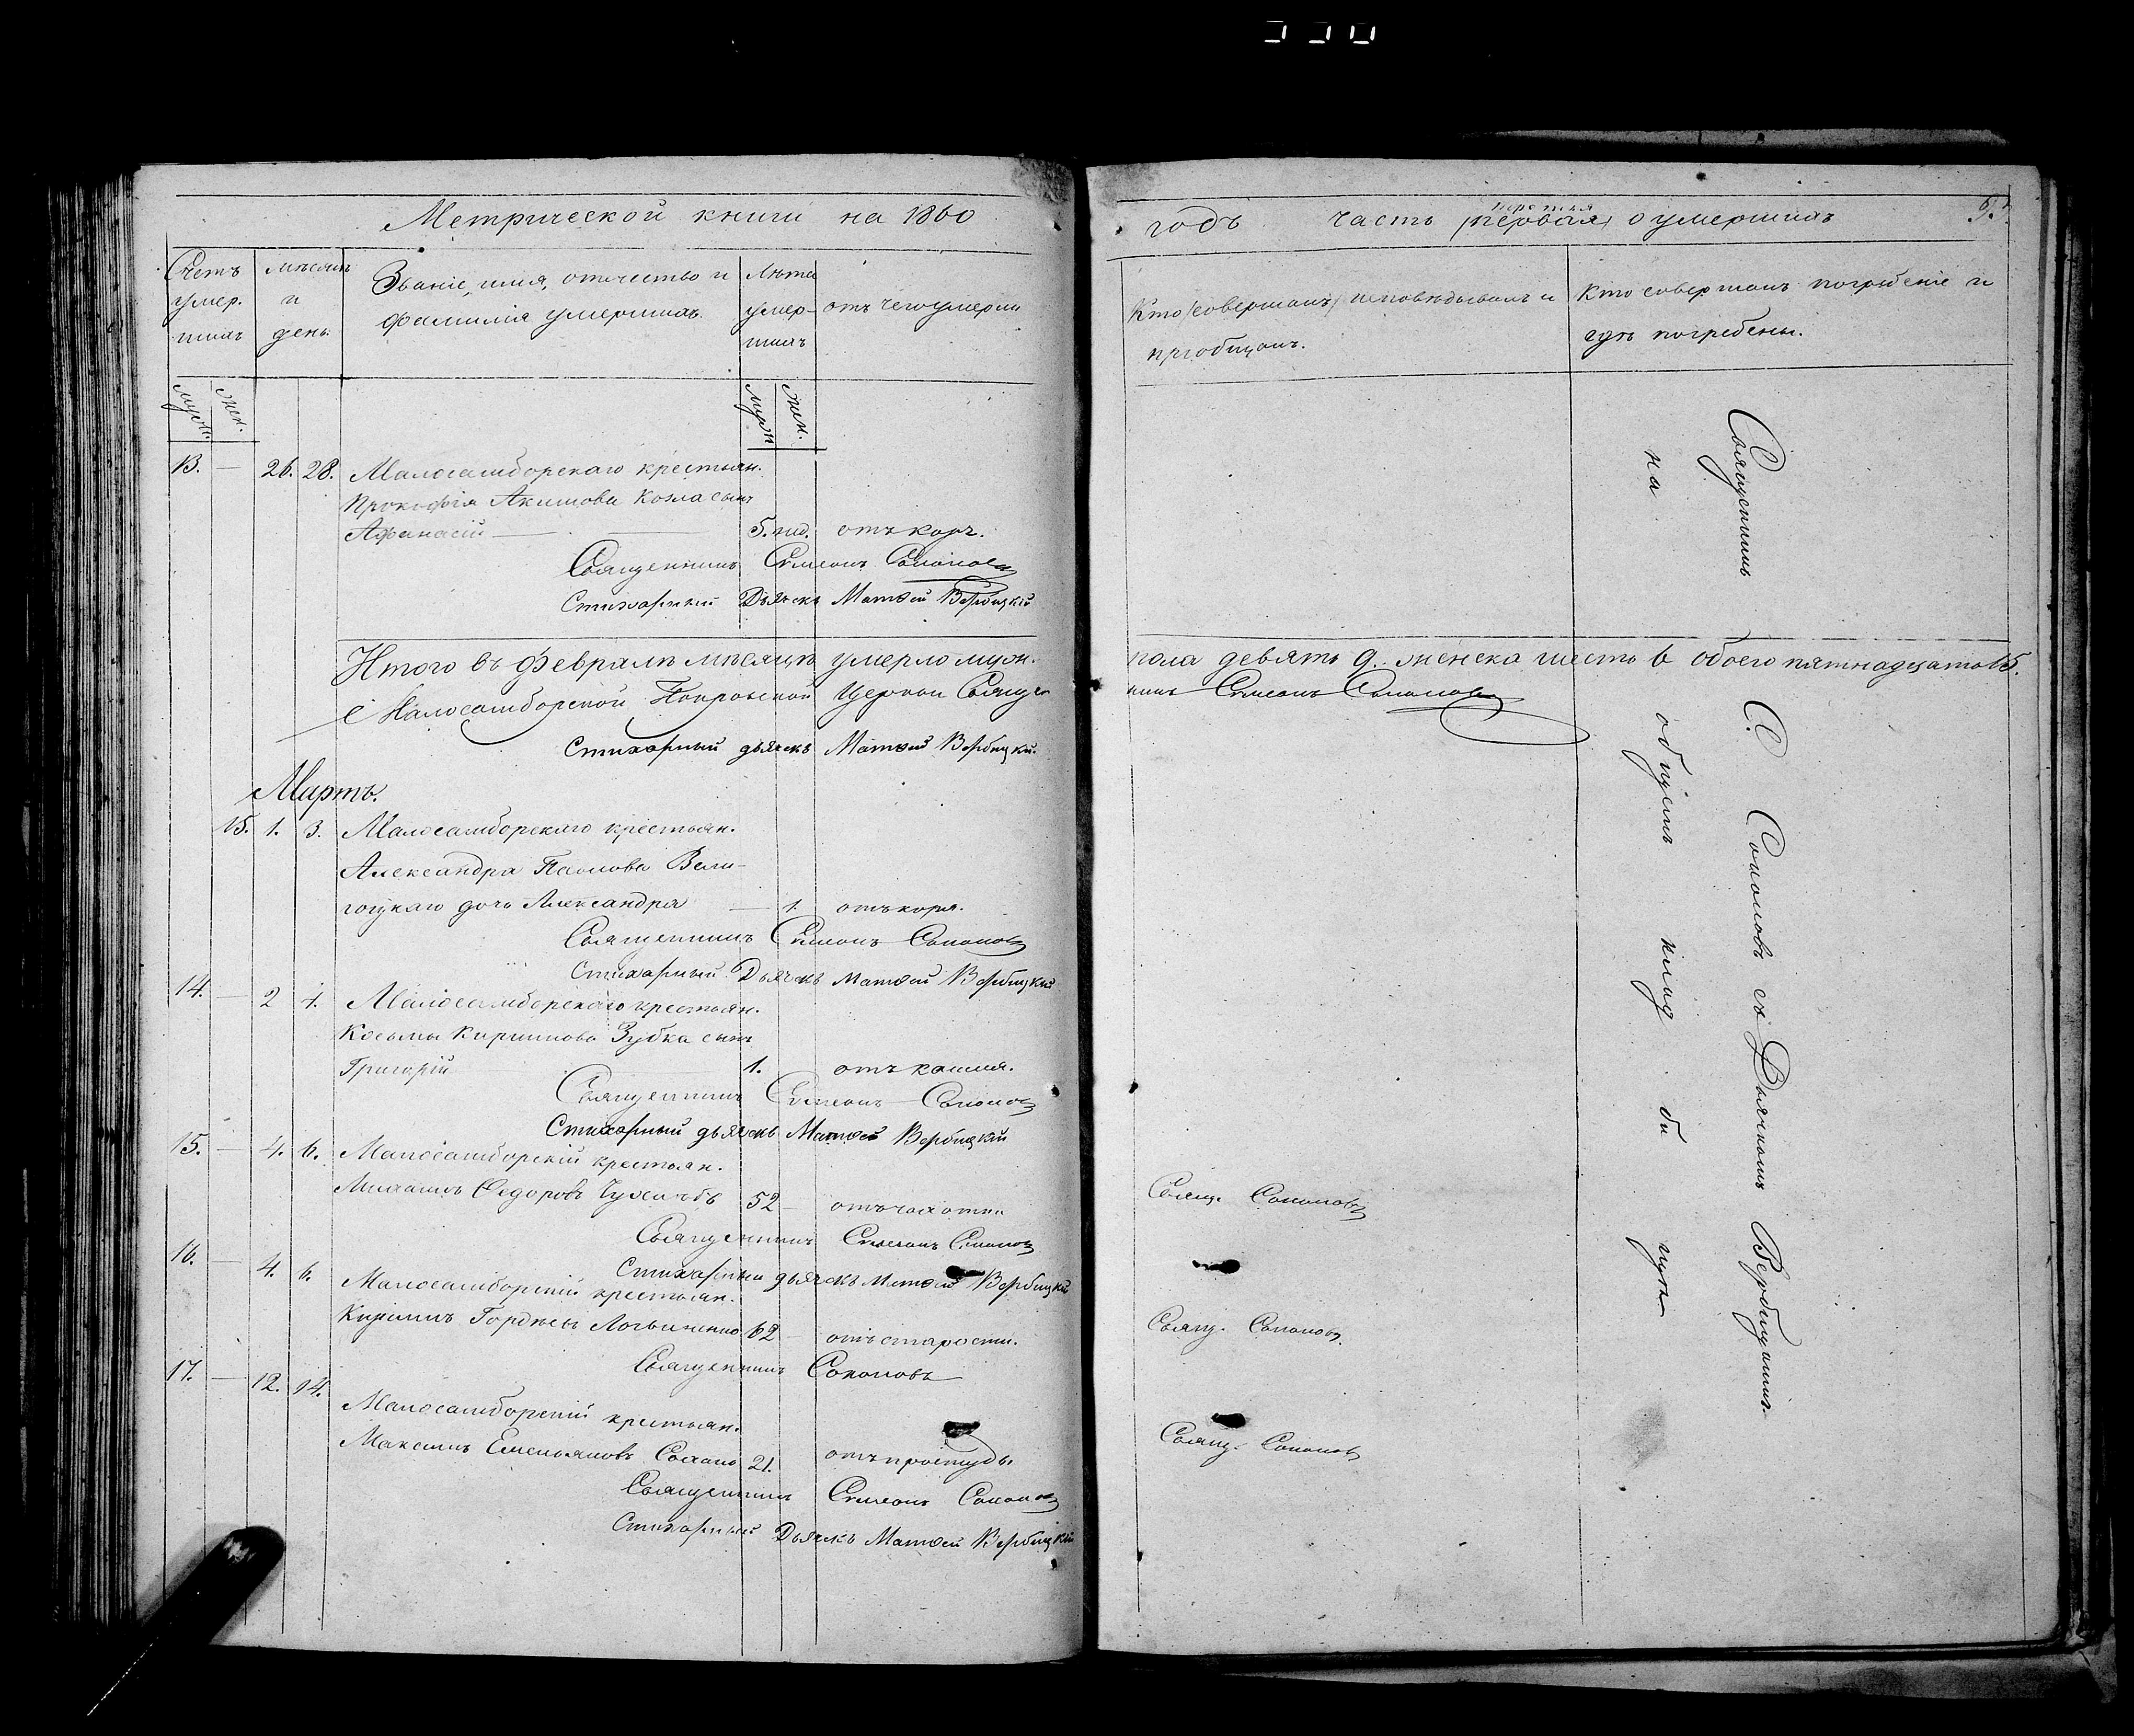 Метрической книги на 1860
Счетъ умер-шихъ
мѣсяцъ и день
Званіе, имя, отчество и фамилія умершихъ.
Лѣта умер-шихъ
отъ чего умерли
муж.
жен.
муж
жен.
13. — 26. 28. Малосамборскаго крестьян.
Прокофія Акимова Козла сынъ
Афанасій — 5. нед. отъ кору.
Священникъ Симеонъ Соколовъ
Стихарный Дьячекъ Матѳей Вербицкій
Итого въ Февралѣ мѣсяцѣ умерло муж.
Малосамборской Покровской Церкви Свяще
Стихарный дьячекъ Матѳей Вербицкій.
Мартъ.
15. 1. 3. Малосамборскаго крестьян.
Александра Павлова Вели-
гоцкаго дочь Александра — 1. отъ коря.
Священникъ Симеонъ Соколовъ
Стихарный Дьячекъ Матѳей Вербицкій
14. — 2 4. Малосамборскаго крестьян.
Косьмы Кириллова Зубка сынъ
Григорій 1. отъ кашля.
Священникъ Симеонъ Соколовъ
Стихарный дьячекъ Матѳей Вербицкій
15. — 4. 6. Малосамборскій крестьян.
Михаилъ Ѳедоровъ 52 — отъ чахотки
Священникъ Симеонъ Соколовъ
Стихарный дьячекъ Матѳей Вербицкій
16. — 4. 6. Малосамборскій крестьян.
Кириллъ Гордѣевъ Логвиненко 62 — отъ старости.
Священникъ Соколовъ
17. — 12. 14. Малосамборскій крестьян.
Максимъ Емельяновъ 21. отъ простуды
Священникъ Симеонъ Соколовъ
Стихарный Дьячекъ Матѳей Вербицкій
годъ часть первая третія о умершихъ
Кто совершалъ исповѣдывалъ и
пріобщалъ.
Кто совершалъ погребеніе и
гдѣ погребены.
пола девять 9. женска шесть 6 обоего пятнадцать 15.
никъ Симеонъ Соколовъ
Свящ. Соколовъ
Свящ. Соколовъ.
Свящ. Соколовъ
Священникъ С. Соколовъ съ Дьячкомъ Вербицкимъ.
на общемъ клад би щѣ